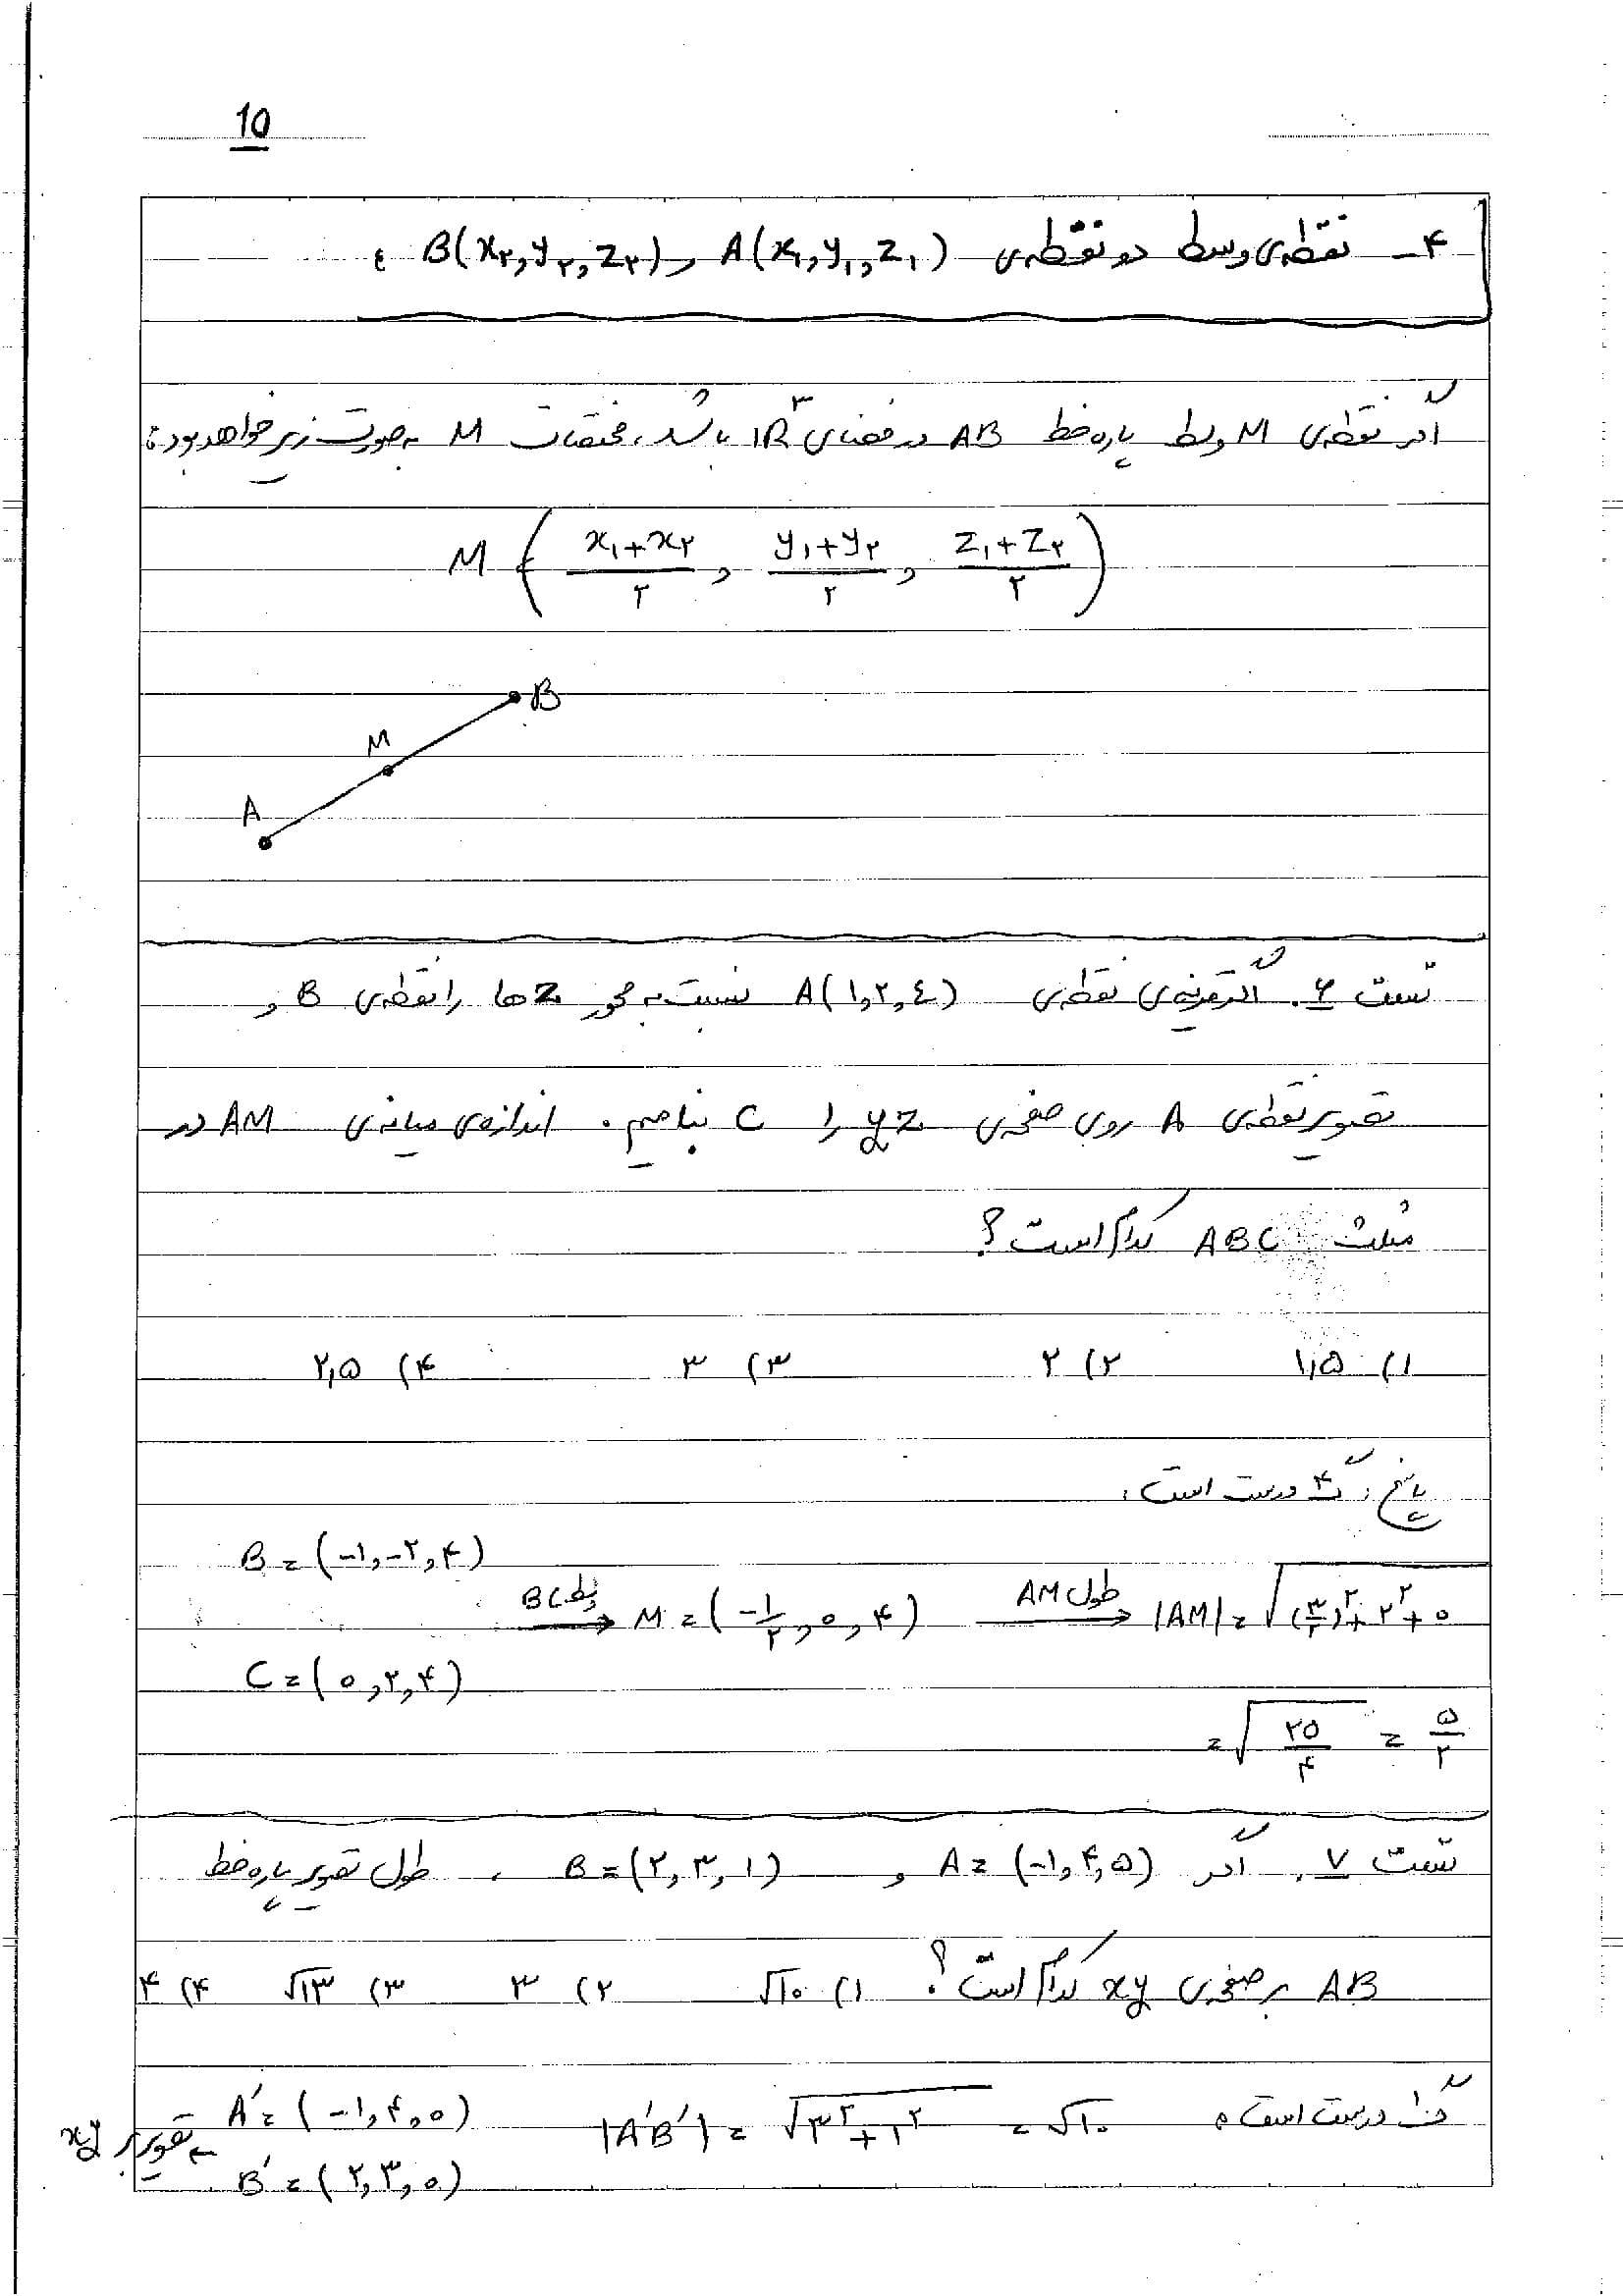 10
۴- نقطه‌ی وسط دو نقطه‌ی A(x₁,y₁,z₁) و B(x₂,y₂,z₂) :
اگر نقطه‌ی M وسط پاره‌خط AB در فضای IR³ باشد، مختصات M به‌صورت زیر خواهد بود:
M ( (x₁+x₂)/۲ , (y₁+y₂)/۲ , (z₁+z₂)/۲ )
B
M
A
تست ۶. اگر قرینه‌ی نقطه‌ی A(۱,۲,٤) نسبت به محور zها را نقطه‌ی B و
تصویر نقطه‌ی A روی صفحه‌ی yz را C بنامیم. اندازه‌ی میانه‌ی AM در
مثلث ABC کدام است؟
۱) ۱,۵ ۲) ۲ ۳) ۳ ۴) ۲,۵
پاسخ: گ ۴ درست است.
B = (-۱,-۲,۴)
وسط BC → M = (-۱/۲ , ۰ , ۴) طول AM → |AM| = √((۳/۲)² + ۲² + ۰)
C = (۰,۲,۴)
= √(۲۵/۴) = ۵/۲
تست ۷. اگر A = (-۱,۴,۵) و B = (۲,۳,۱) ، طول تصویر پاره‌خط
AB بر صفحه‌ی xy کدام است؟ ۱) √۱۰ ۲) ۳ ۳) √۱۳ ۴) ۴
گ ۱ درست است. |A′B′| = √(۳²+۱²) = √۱۰ A′ = (-۱,۴,۰)
تصویر بر xy B′ = (۲,۳,۰)